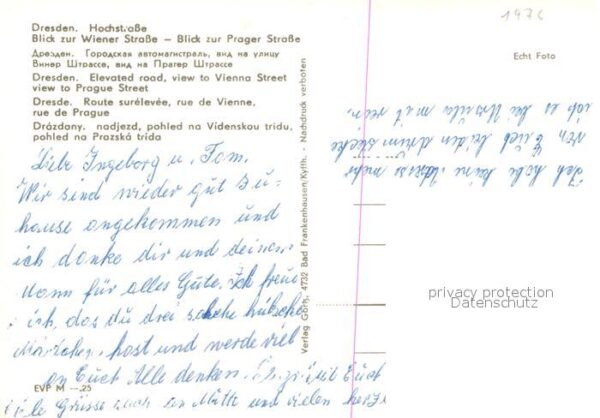 1976
Dresden. Hochstraße
Blick zur Wiener Straße — Blick zur Prager Straße
Дрезден. Городская автомагистраль, вид на улицу
Винер Штрассе, вид на Прагер Штрассе
Dresden. Elevated road, view to Vienna Street
view to Prague Street
Dresde. Route surélevée, rue de Vienne,
rue de Prague
Drázdany. nadjezd, pohled na Videnskou tridu,
pohled na Prazská trida
Echt Foto
Liebe Ingeborg u. Tom.
Wir sind wieder gut zu-
hause angekommen und
ich danke dir und deinem
Mann für alles Gute. Ich freue
ich, das du drei solche hübsche
Mädchen hast und werde viel
an Euch Alle denken.
viele Grüsse auch an Mutti und vielen
EVP M —.25
Verlag Görtz, 4732 Bad Frankenhausen/Kyffh. · Nachdruck verboten
Ich habe keine Adresse mehr
von Erich bei den drum
ich es bei Ursula mit rein.
privacy protection
Datenschutz